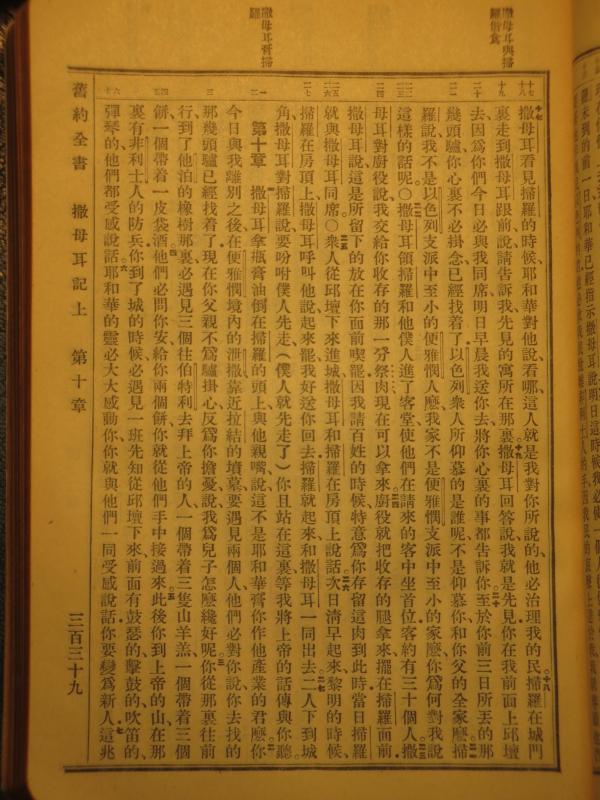 撒母耳與掃
羅偕食
撒母耳膏掃
羅
撒母耳看見掃羅的時候、耶和華對他說、看哪這人就是我對你所說的、他必治理我的民掃羅在城門
裏走到撒母耳跟前說、請告訴我先見的寓所在那裏撒母耳回答說、我就是先見你在我前面上邱壇
去、因爲你們今日必與我同席、明日早晨我送你去、將你心裏的事都告訴你至於你前三日所丟的那
幾頭驢、你心裏不必掛念、已經找着了以色列衆人所仰慕的是誰呢不是仰慕你和你父的全家麽掃
羅說、我不是以色列支派中至小的便雅憫人麽我家不是便雅憫支派中至小的家麽你爲何對我說
這樣的話呢○撒母耳領掃羅和他僕人進了客堂、使他們在請來的客中坐首位、客約有三十個人撒
母耳對廚役說、我交給你收存的那一分祭肉、現在可以拿來廚役就把收存的腿拿來、擺在掃羅面前
撒母耳說、這是所留下的、放在你面前、喫罷因我請百姓的時候、特意爲你存留這肉到此時當日掃羅
就與撒母耳同席○衆人從邱壇下來進城撒母耳和掃羅在房頂上說話次日淸早起來、黎明的時候、
掃羅在房頂上撒母耳呼叫他說、起來罷我好送你回去掃羅就起來、和撒母耳一同出去二人下到城
角、撒母耳對掃羅說、要吩咐僕人先走(僕人就先走了)你且站在這裏、等我將上帝的話傳與你聽
第十章 撒母耳拿瓶膏油倒在掃羅的頭上、與他親嘴、說、這不是耶和華膏你作他產業的君麽你
今日與我離別之後、在便雅憫境內的泄撒、靠近拉結的墳墓、要遇見兩個人他們必對你說、你去找的
那幾頭驢已經找着了現在你父親不爲驢掛心、反爲你擔憂、說、我爲兒子怎麽纔好呢你從那裏往前
行、到了他泊的橡樹那裏、必遇見三個往伯特利去拜上帝的人一個帶着三隻山羊羔、一個帶着三個
餅、一個帶着一皮袋酒他們必問你安、給你兩個餅、你就從他們手中接過來此後你到上帝的山、在那
裏有非利士人的防兵你到了城的時候、必遇見一班先知從邱壇下來、前面有鼓瑟的、擊鼓的、吹笛的、
彈琴的、他們都受感說話耶和華的靈必大大感動你、你就與他們一同受感說話、你要變爲新人這兆
舊約全書 撒母耳記上 第十章 三百三十九